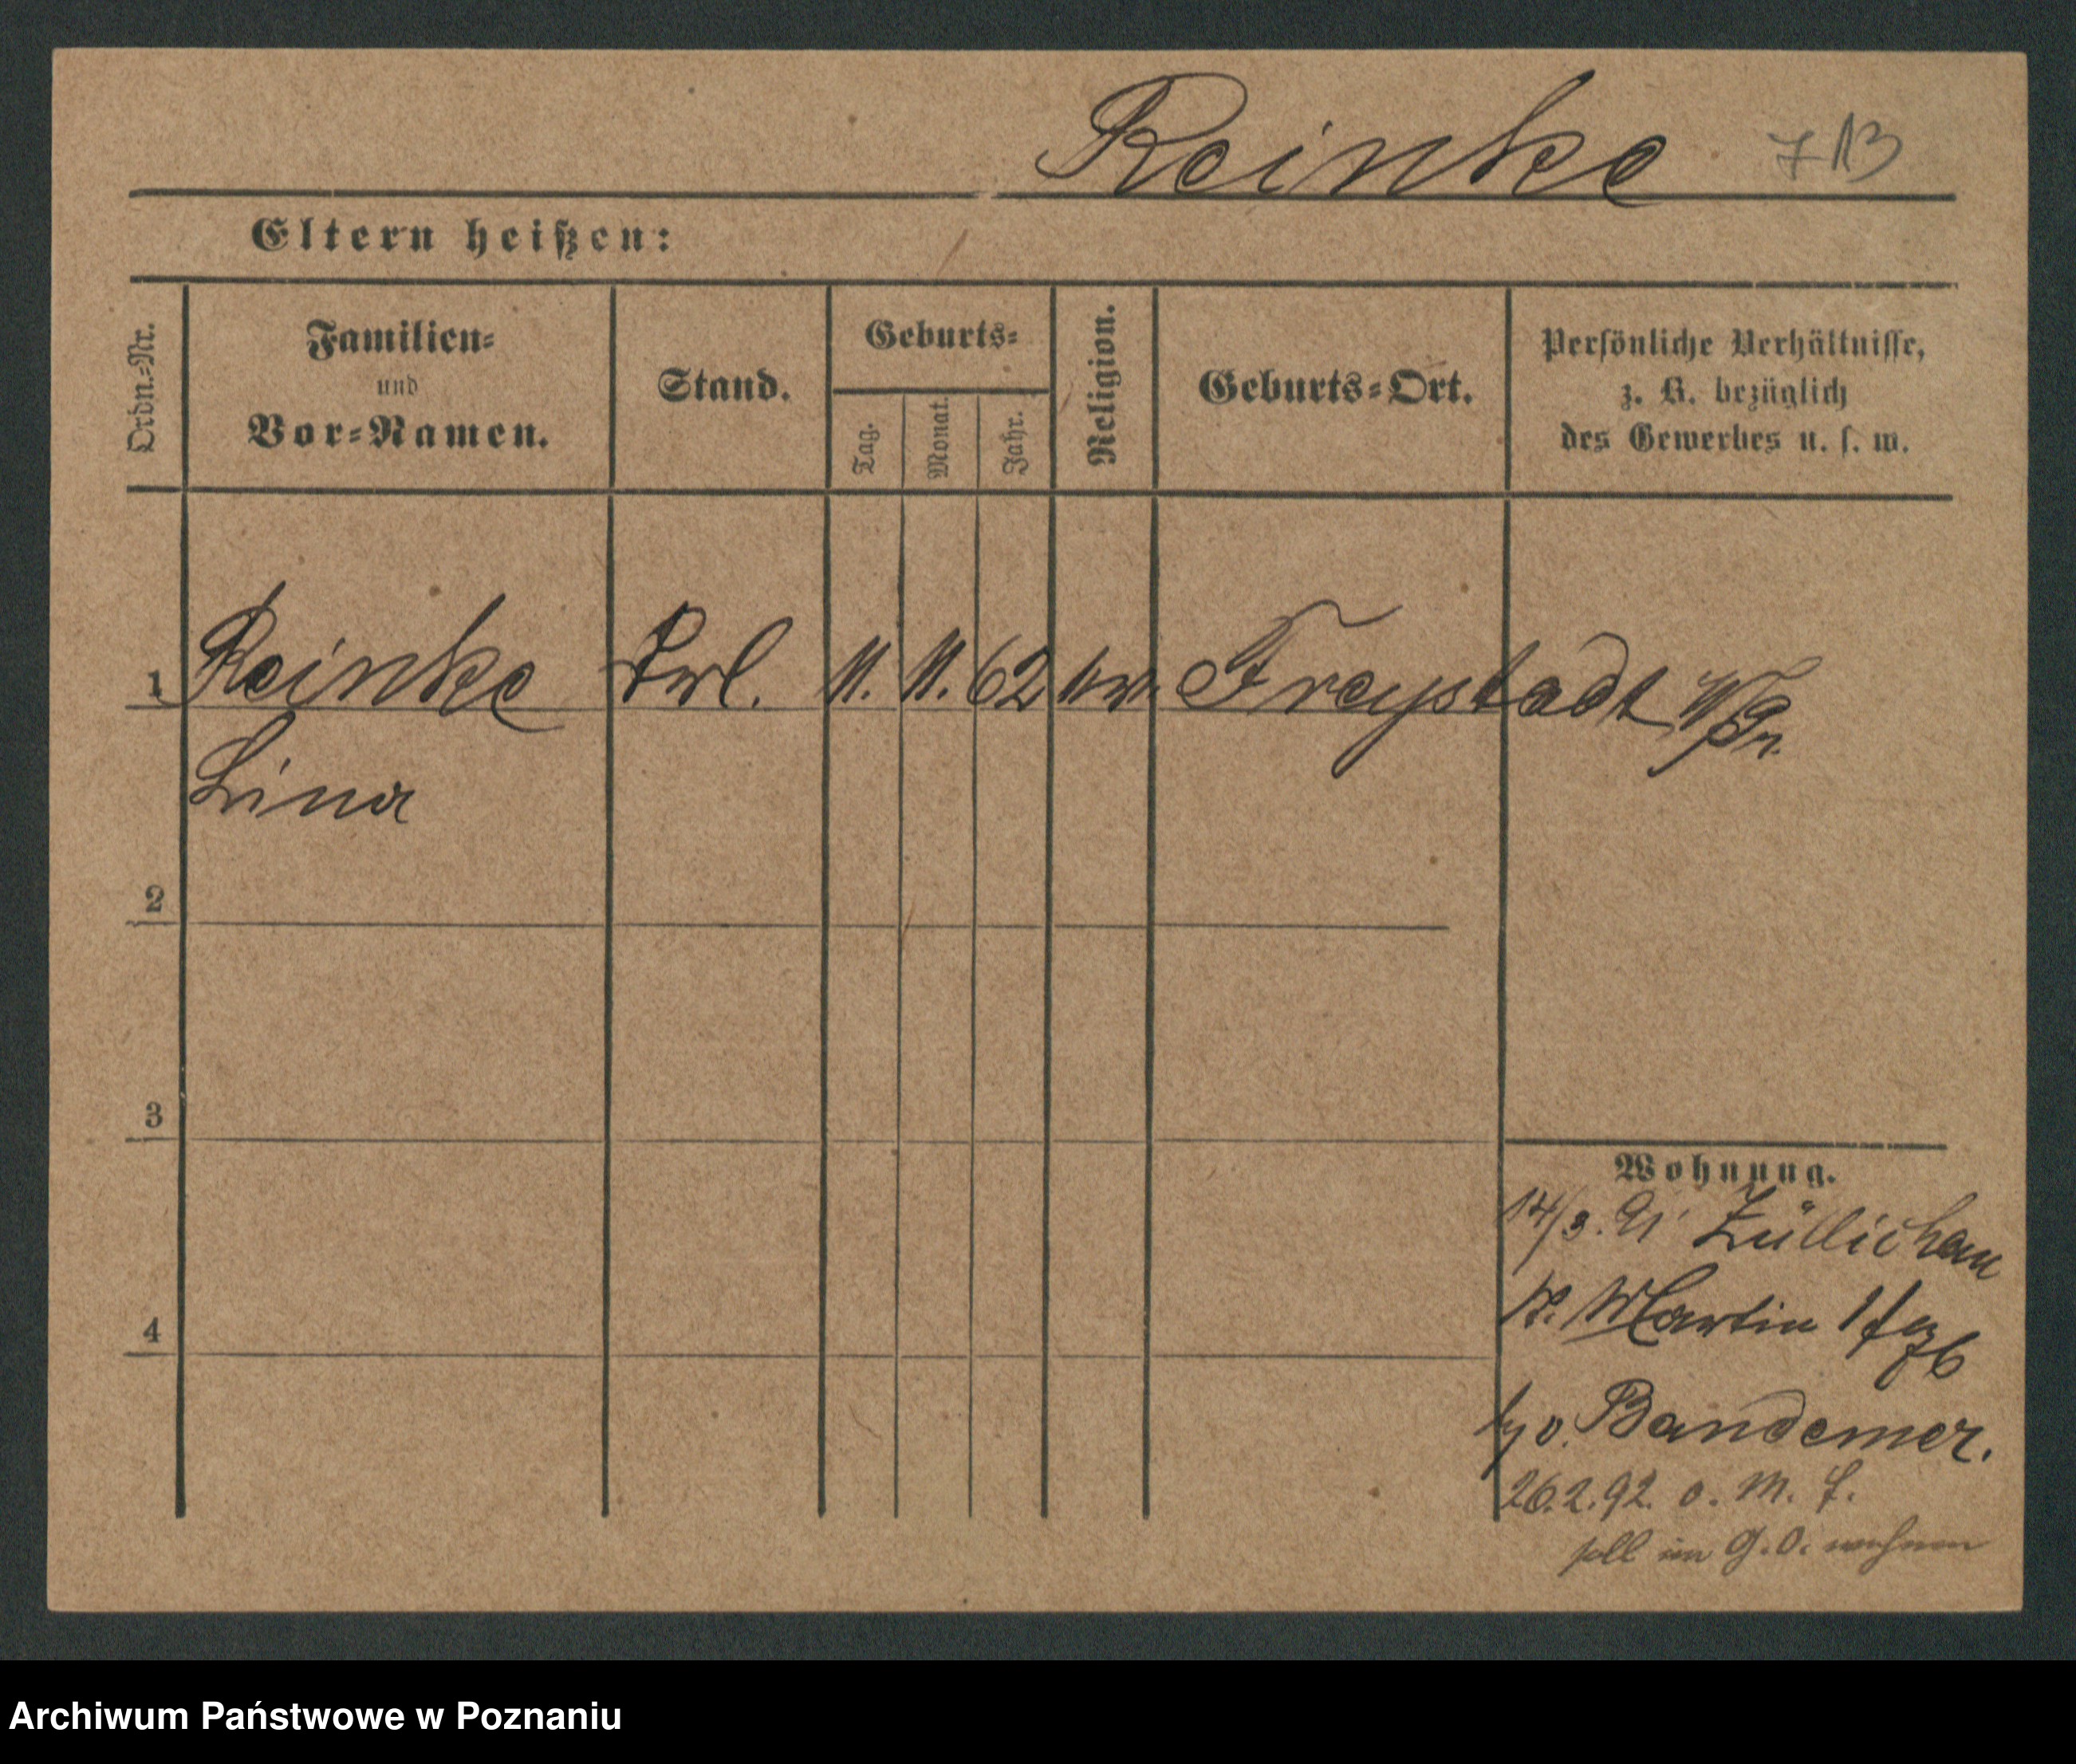 Reinke 713
Eltern heißen:
Ordn.-Nr.
Familien-
und
Vor-Namen.
Stand.
Geburts-
Tag.
Monat.
Jahr.
Religion.
Geburts-Ort.
Persönliche Verhältnisse,
z. B. bezüglich
des Gewerbes u. s. w.
1 Reinke Frl. 11. 11. 62 ev. Freystadt W/Pr.
Lina
2
3
4
Wohnung.
14/3. 91 Züllichau
St. Martin
b/ v. Bandemer.
26.2.92. o. M. f.
soll im G. O. wohnen
Archiwum Państwowe w Poznaniu